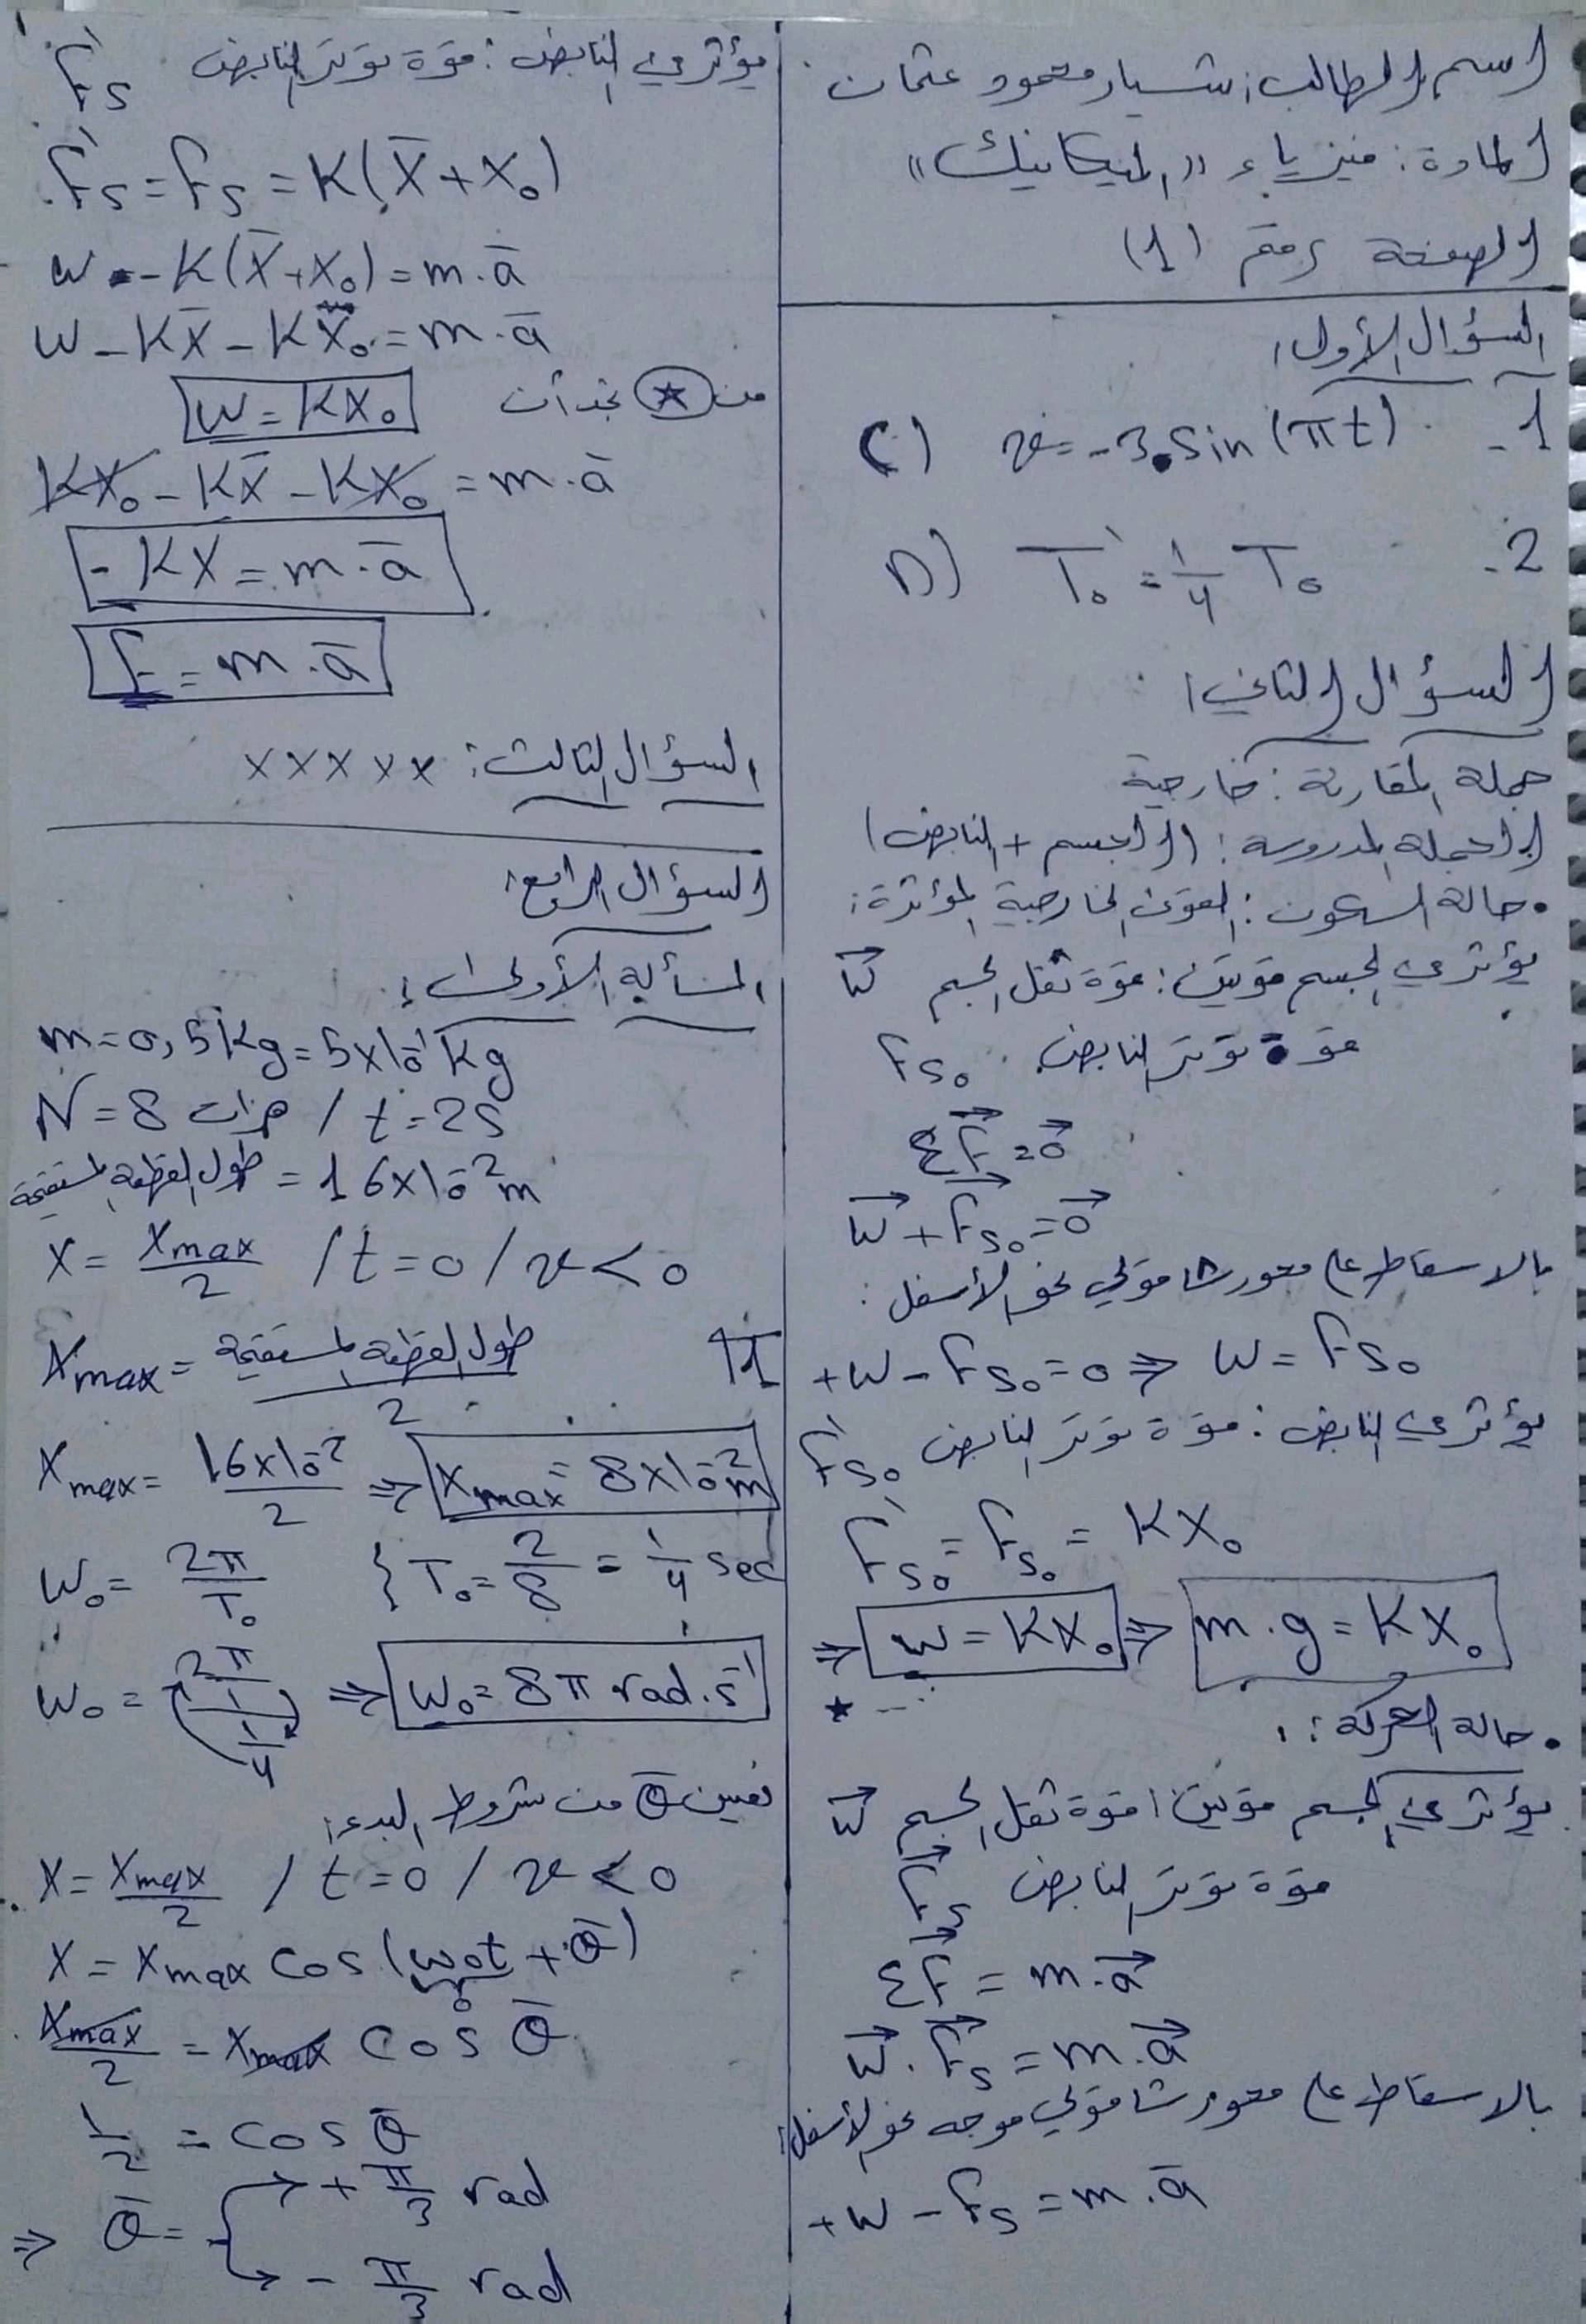 اسم الطالب: شيار محمود عثمان
المادة: فيزياء "الميكانيك"
الصفحة رقم (1)
السؤال الأول:
1- C) v = -3 sin (πt)
2- D) T₀' = 1/4 T₀
السؤال الثاني:
جملة المقارنة: خارجية
الجملة المدروسة: (الجسم + النابض)
• حالة السكون: القوى الخارجية المؤثرة:
يؤثر في الجسم قوتين: قوة ثقل الجسم W⃗
قوة توتر النابض Fs₀
ΣF⃗ = 0⃗
W⃗ + F⃗s₀ = 0⃗
بالاسقاط على محور شاقولي نحو الأسفل:
+W - Fs₀ = 0 ⇒ W = Fs₀
يؤثر في النابض: قوة توتر النابض F's₀
F's₀ = Fs₀ = KX₀
⇒ W = KX₀ ⇒ m.g = KX₀
★ ....
• حالة الحركة:
يؤثر في الجسم قوتين: قوة ثقل الجسم W⃗
قوة توتر النابض F⃗s
ΣF⃗ = m.a⃗
W⃗ . F⃗s = m.a⃗
بالاسقاط على محور شاقولي موجه نحو الأسفل:
+W - Fs = m.a̅
يؤثر في النابض: قوة توتر النابض F's
F's = Fs = K(x̅ + x₀)
W - K(x̅ + x₀) = m.a̅
W - Kx̅ - Kx₀ = m.a̅
من ★ نجد أن W = KX₀
KX₀ - Kx̅ - KX₀ = m.a̅
-KX = m.a̅
F = m.a̅
السؤال الثالث: xxxxx
السؤال الرابع:
المسألة الأولى:
m = 0,5 Kg = 5x10⁻¹ Kg
N = 8 هزات / t = 2s
طول القطعة المستقيمة = 16x10⁻² m
X = Xmax/2 / t = 0 / v < 0
1 Xmax = طول القطعة المستقيمة / 2
Xmax = 16x10⁻²/2 ⇒ Xmax = 8x10⁻² m
ω₀ = 2π/T₀ } T₀ = 2/8 = 1/4 sec
ω₀ = (2π/(1/4)) ⇒ ω₀ = 8π rad.s⁻¹
نعين θ̅ من شروط البدء:
X = Xmax/2 / t = 0 / v < 0
X = Xmax cos (ω₀t + θ̅)
0
Xmax/2 = Xmax cos θ̅
1/2 = cos θ̅
⇒ θ̅ = { → + π/3 rad
→ - π/3 rad